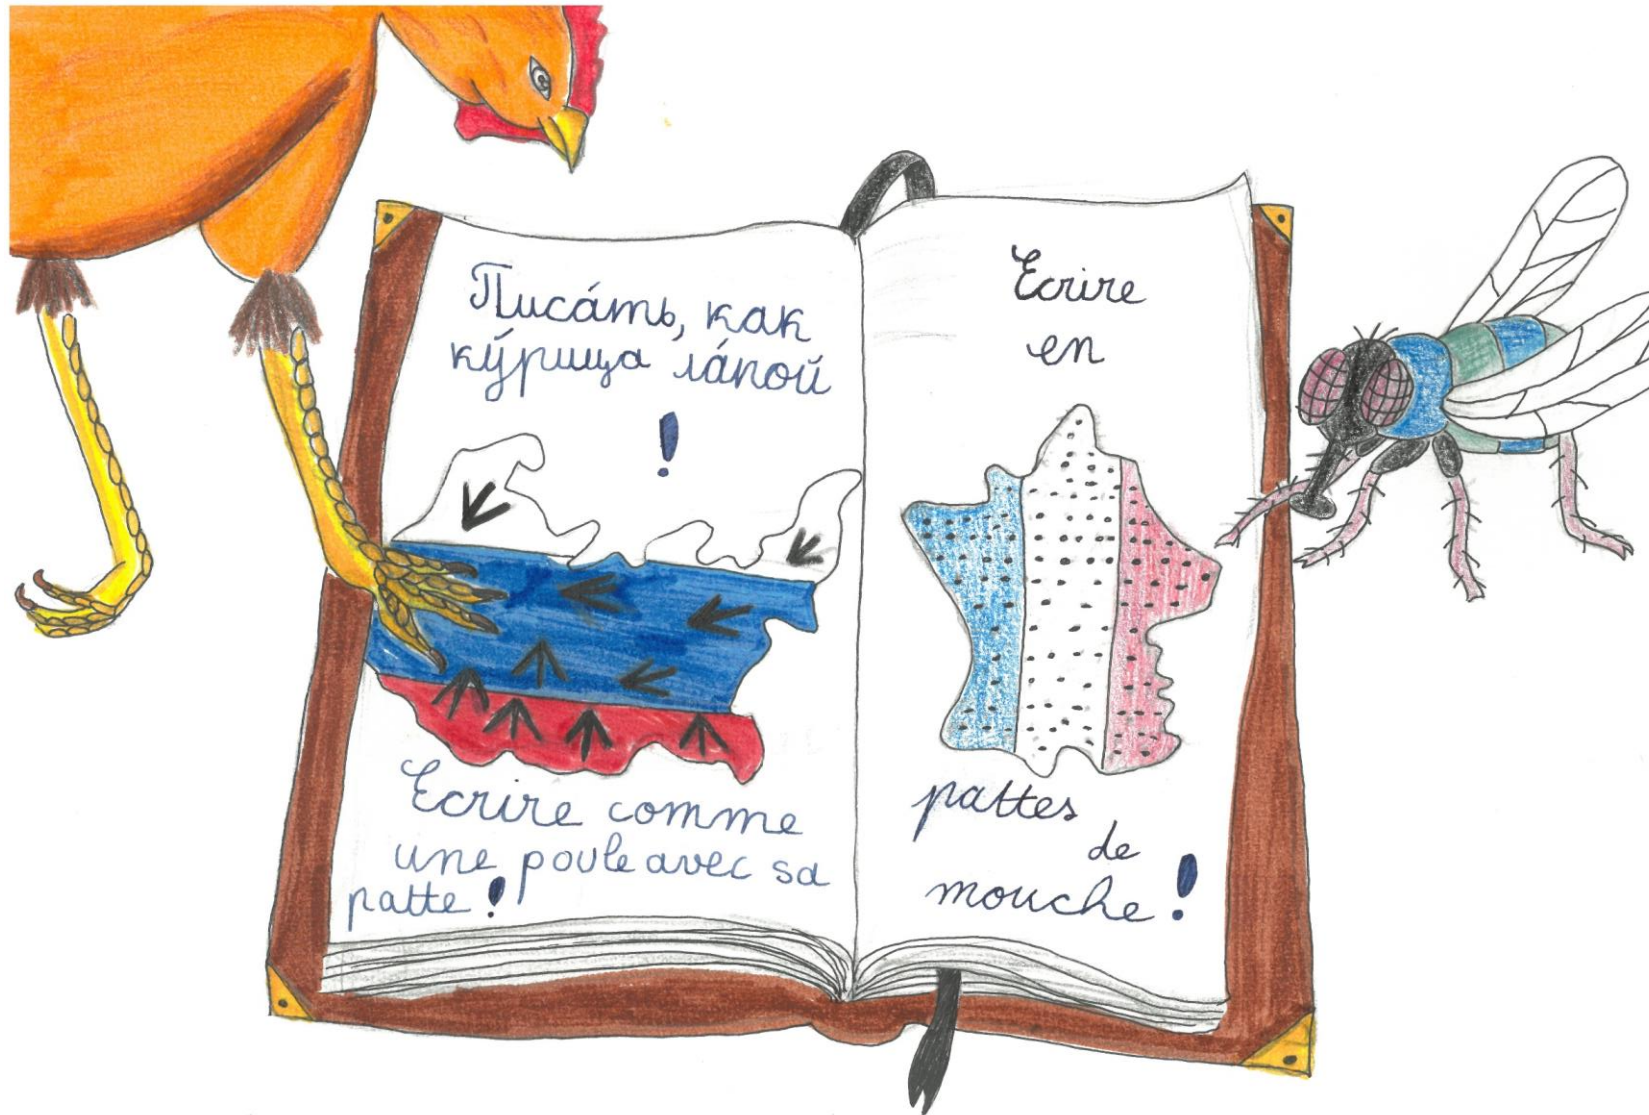 Писа́ть, как
ку́рица ла́пой
!
Ecrire comme
une poule avec sa
patte !
Ecrire
en
pattes
de
mouche !